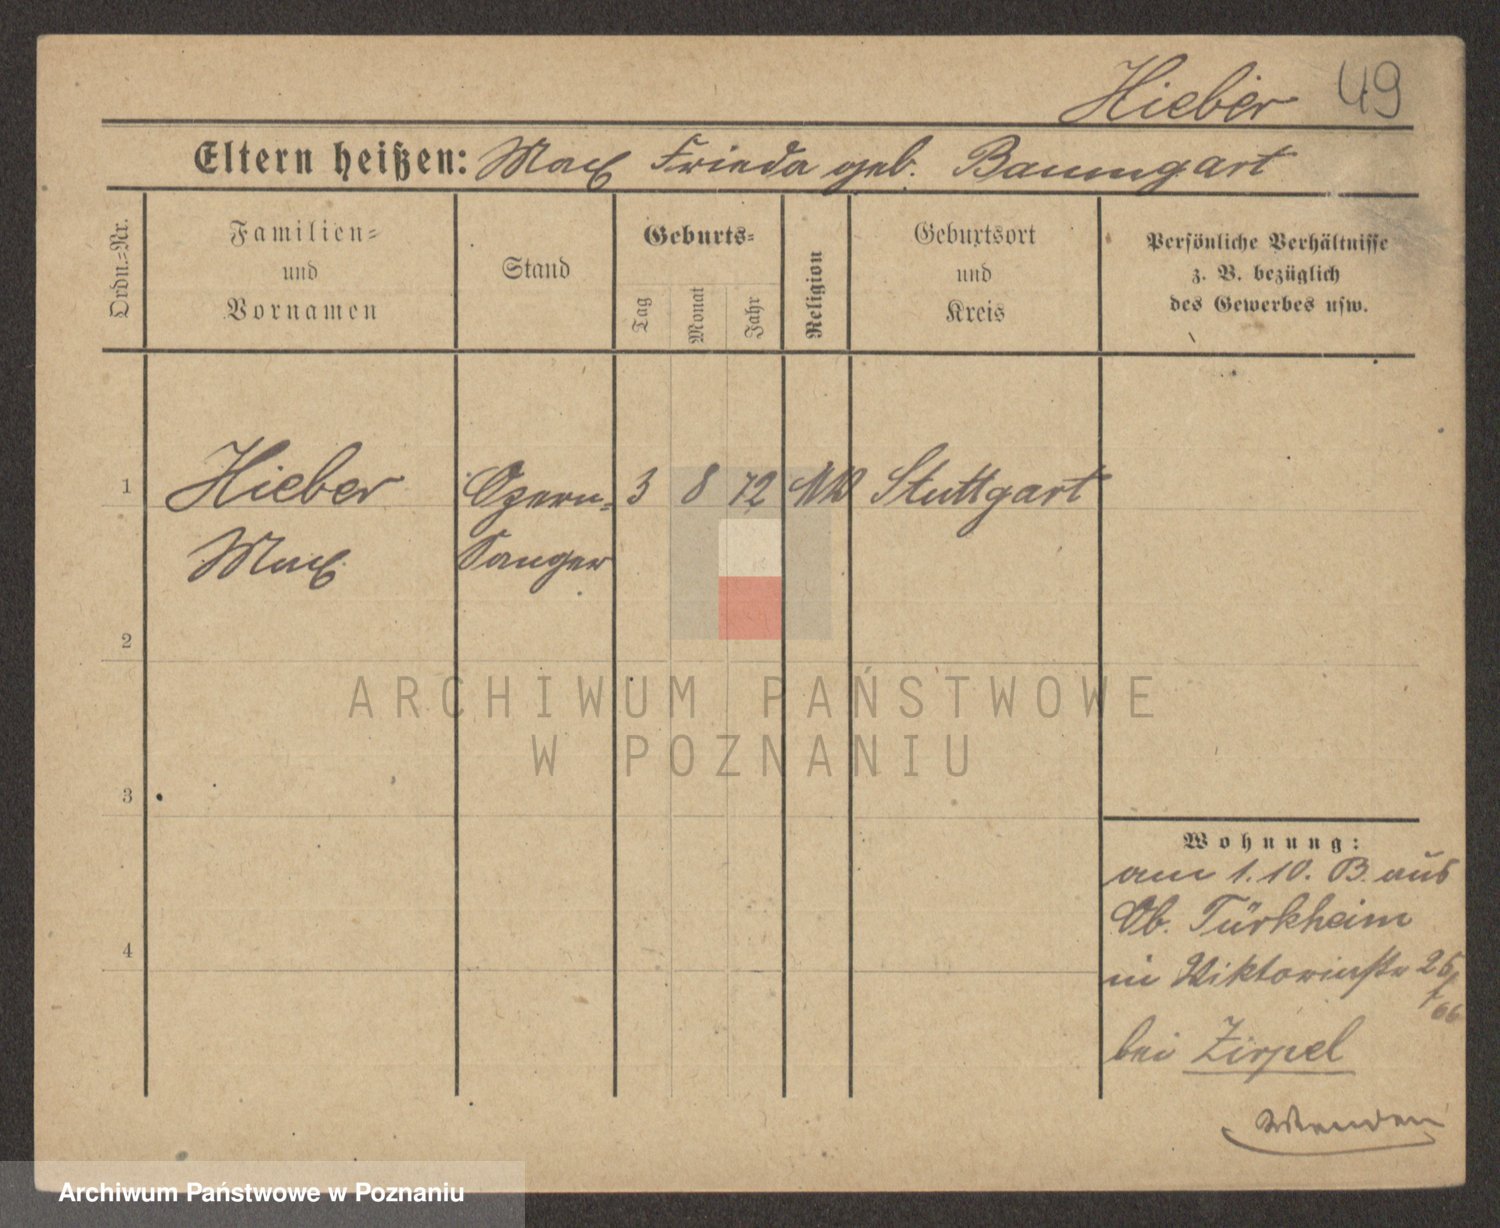 Hieber 49
Eltern heißen: Max Frieda geb. Baumgart
Ordn.=Nr.
Familien=
und
Vornamen
Stand
Geburts=
Tag
Monat
Jahr
Religion
Geburtsort
und
Kreis
Persönliche Verhältnisse
z. B. bezüglich
des Gewerbes usw.
1 Hieber Opern= 3 8 72 Stuttgart
Max Sanger
2
3
4
Wohnung:
am 1. 10. B. aus
Ob. Türkheim
in Viktoriastr 25
bei Zirpel
Wenden
ARCHIWUM PAŃSTWOWE
W POZNANIU
Archiwum Państwowe w Poznaniu